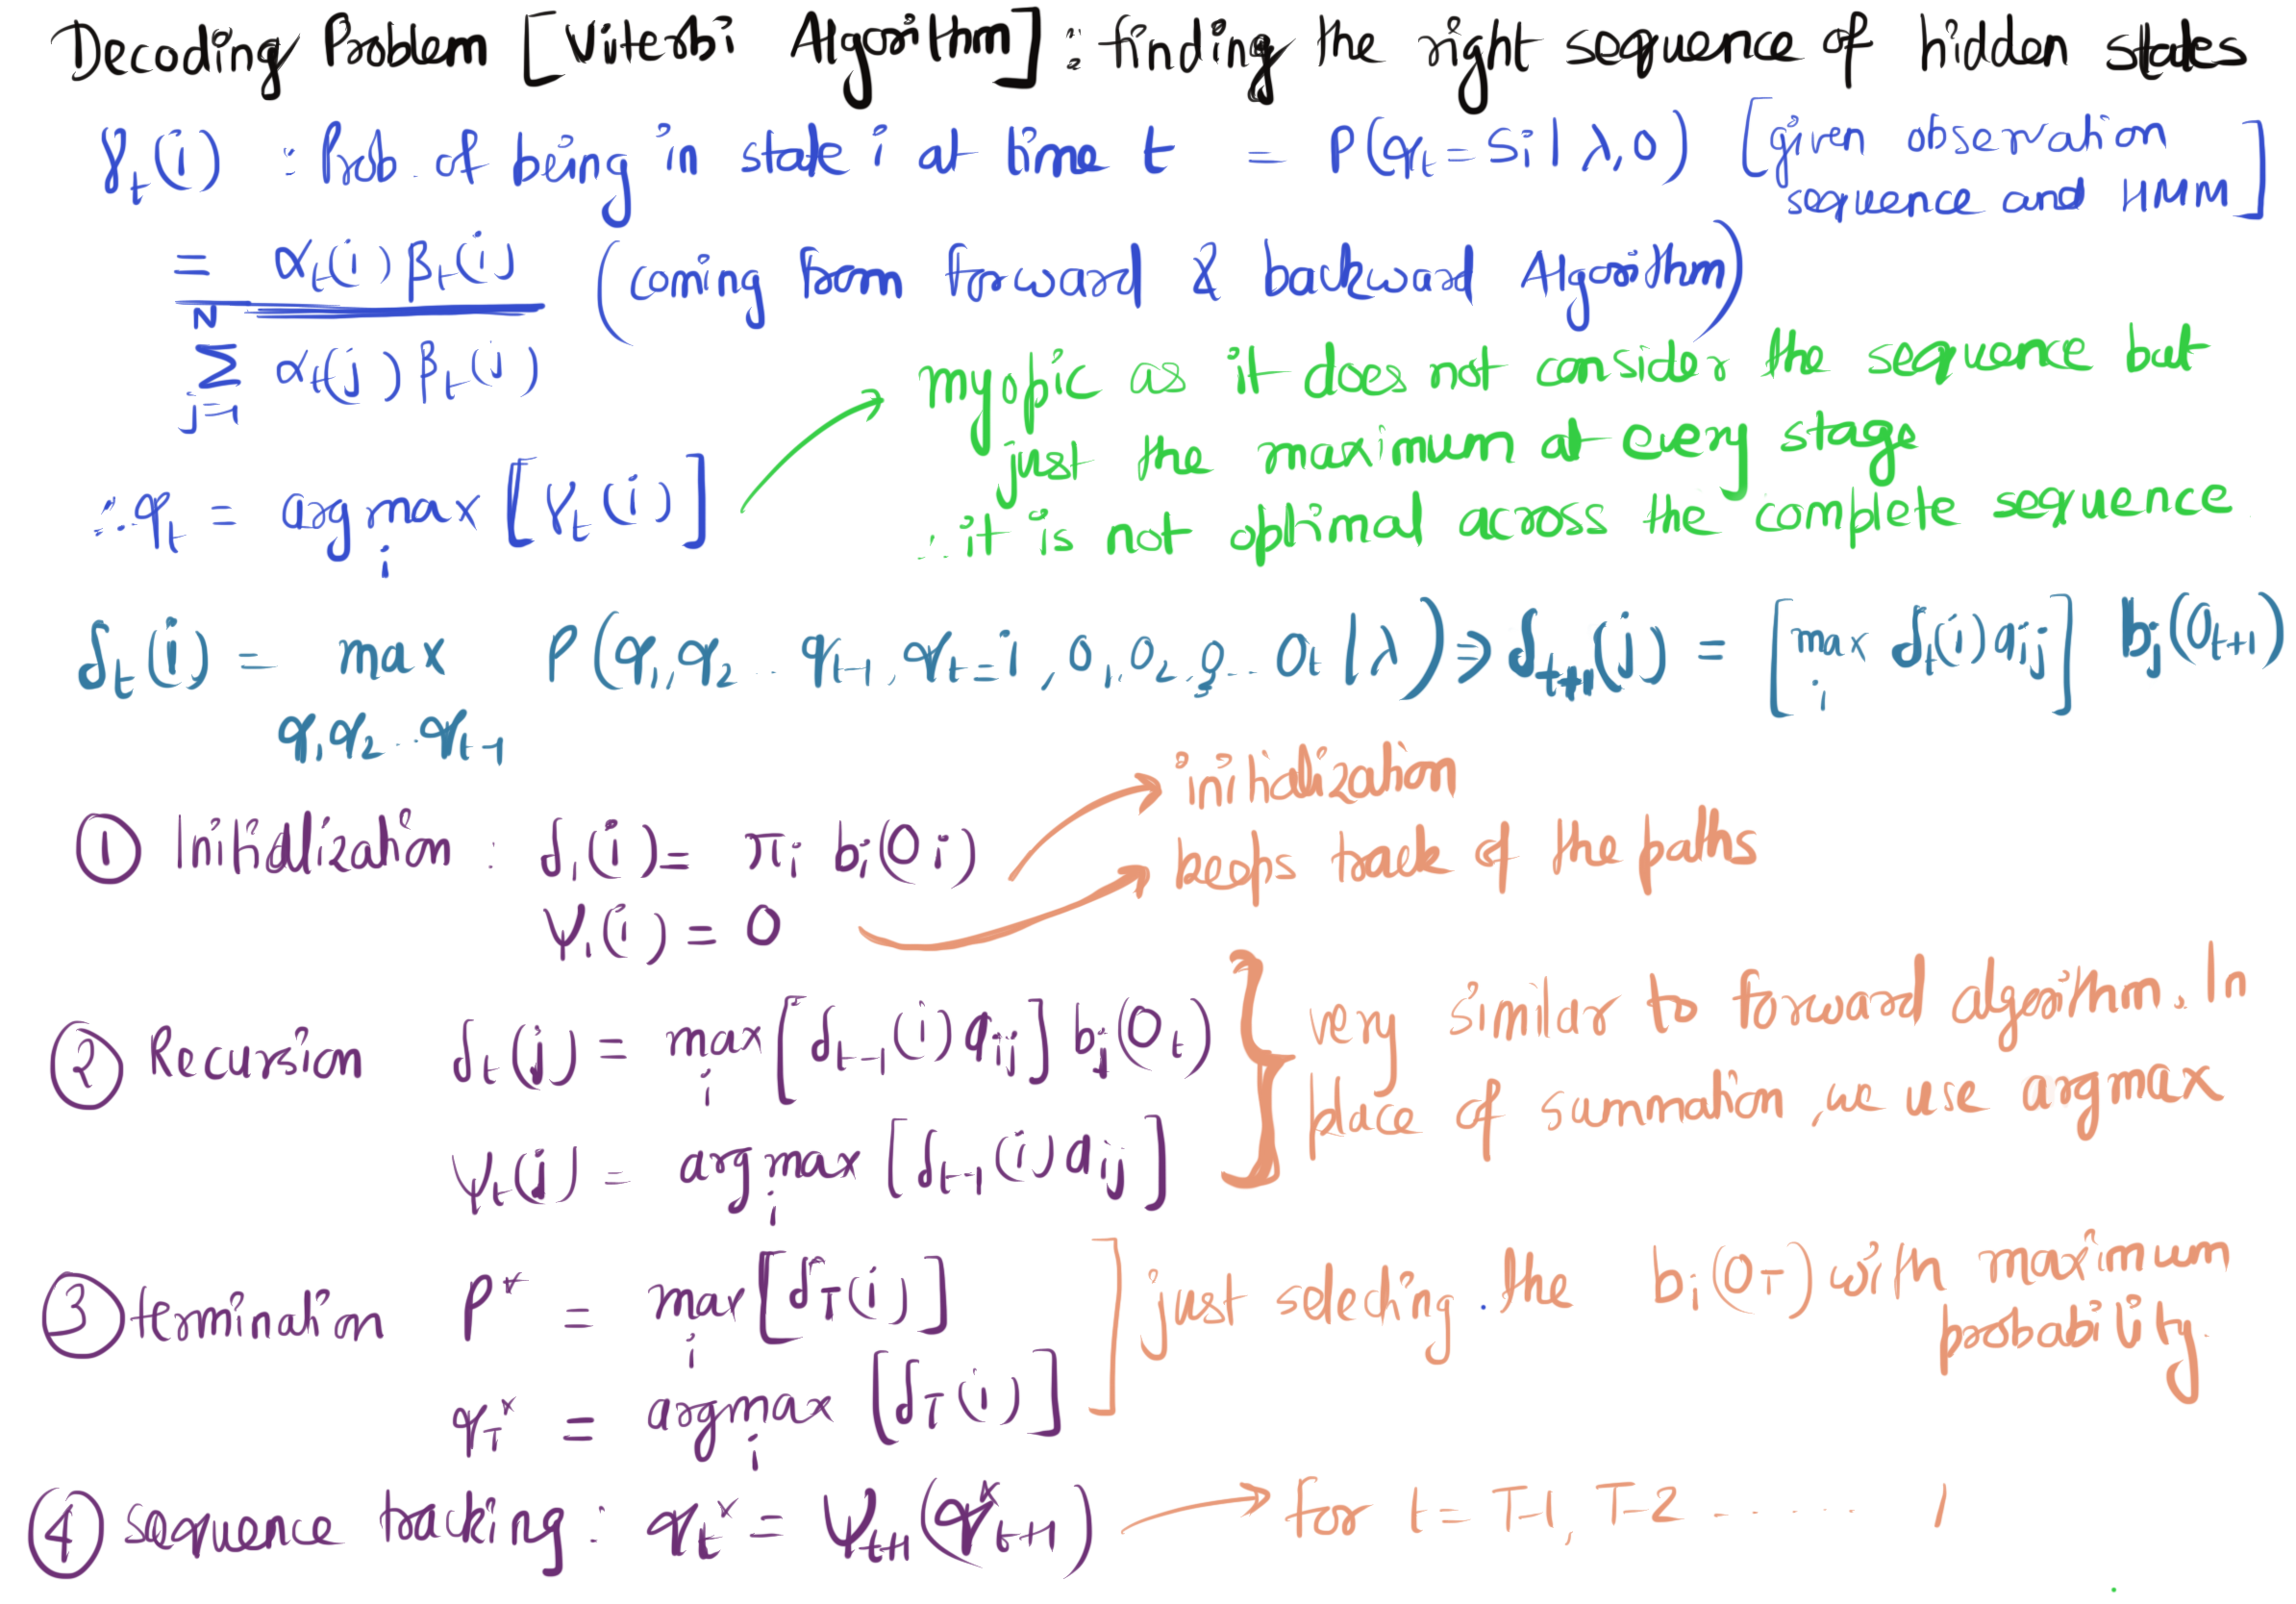 Decoding Problem [Viterbi Algorithm] : finding the right sequence of hidden states
γt(i) : Prob. of being in state i at time t = P(qt = Si | λ, O) [given observation sequence and HMM]
= αt(i) βt(i) / Σ_{j=1}^{N} αt(j) βt(j) (coming from forward & backward Algorithm)
myopic as it does not consider the sequence but
just the maximum at every stage
∴ qt = argmax_i [γt(i)]
∴ it is not optimal across the complete sequence
δt(i) = max_{q1,q2..qt-1} P(q1,q2..qt-1,qt=i,O1,O2,O3...Ot|λ) ⇒ δt+1(j) = [max_i δt(i)aij] bj(Ot+1)
initialization
① Initialization : δ1(i) = πi bi(Oi)
keeps track of the paths
ψ1(i) = 0
② Recursion δt(j) = max_i [δt-1(i)aij] bj(Ot)
very similar to forward algorithm. In
place of summation, we use argmax
ψt(j) = argmax_i [δt-1(i)aij]
③ termination P* = max_i [δT(i)]
just selecting the bi(OT) with maximum
probability.
qT* = argmax_i [δT(i)]
④ sequence tracking : qt* = ψt+1(q*t+1) → for t = T-1, T-2 ...... 1